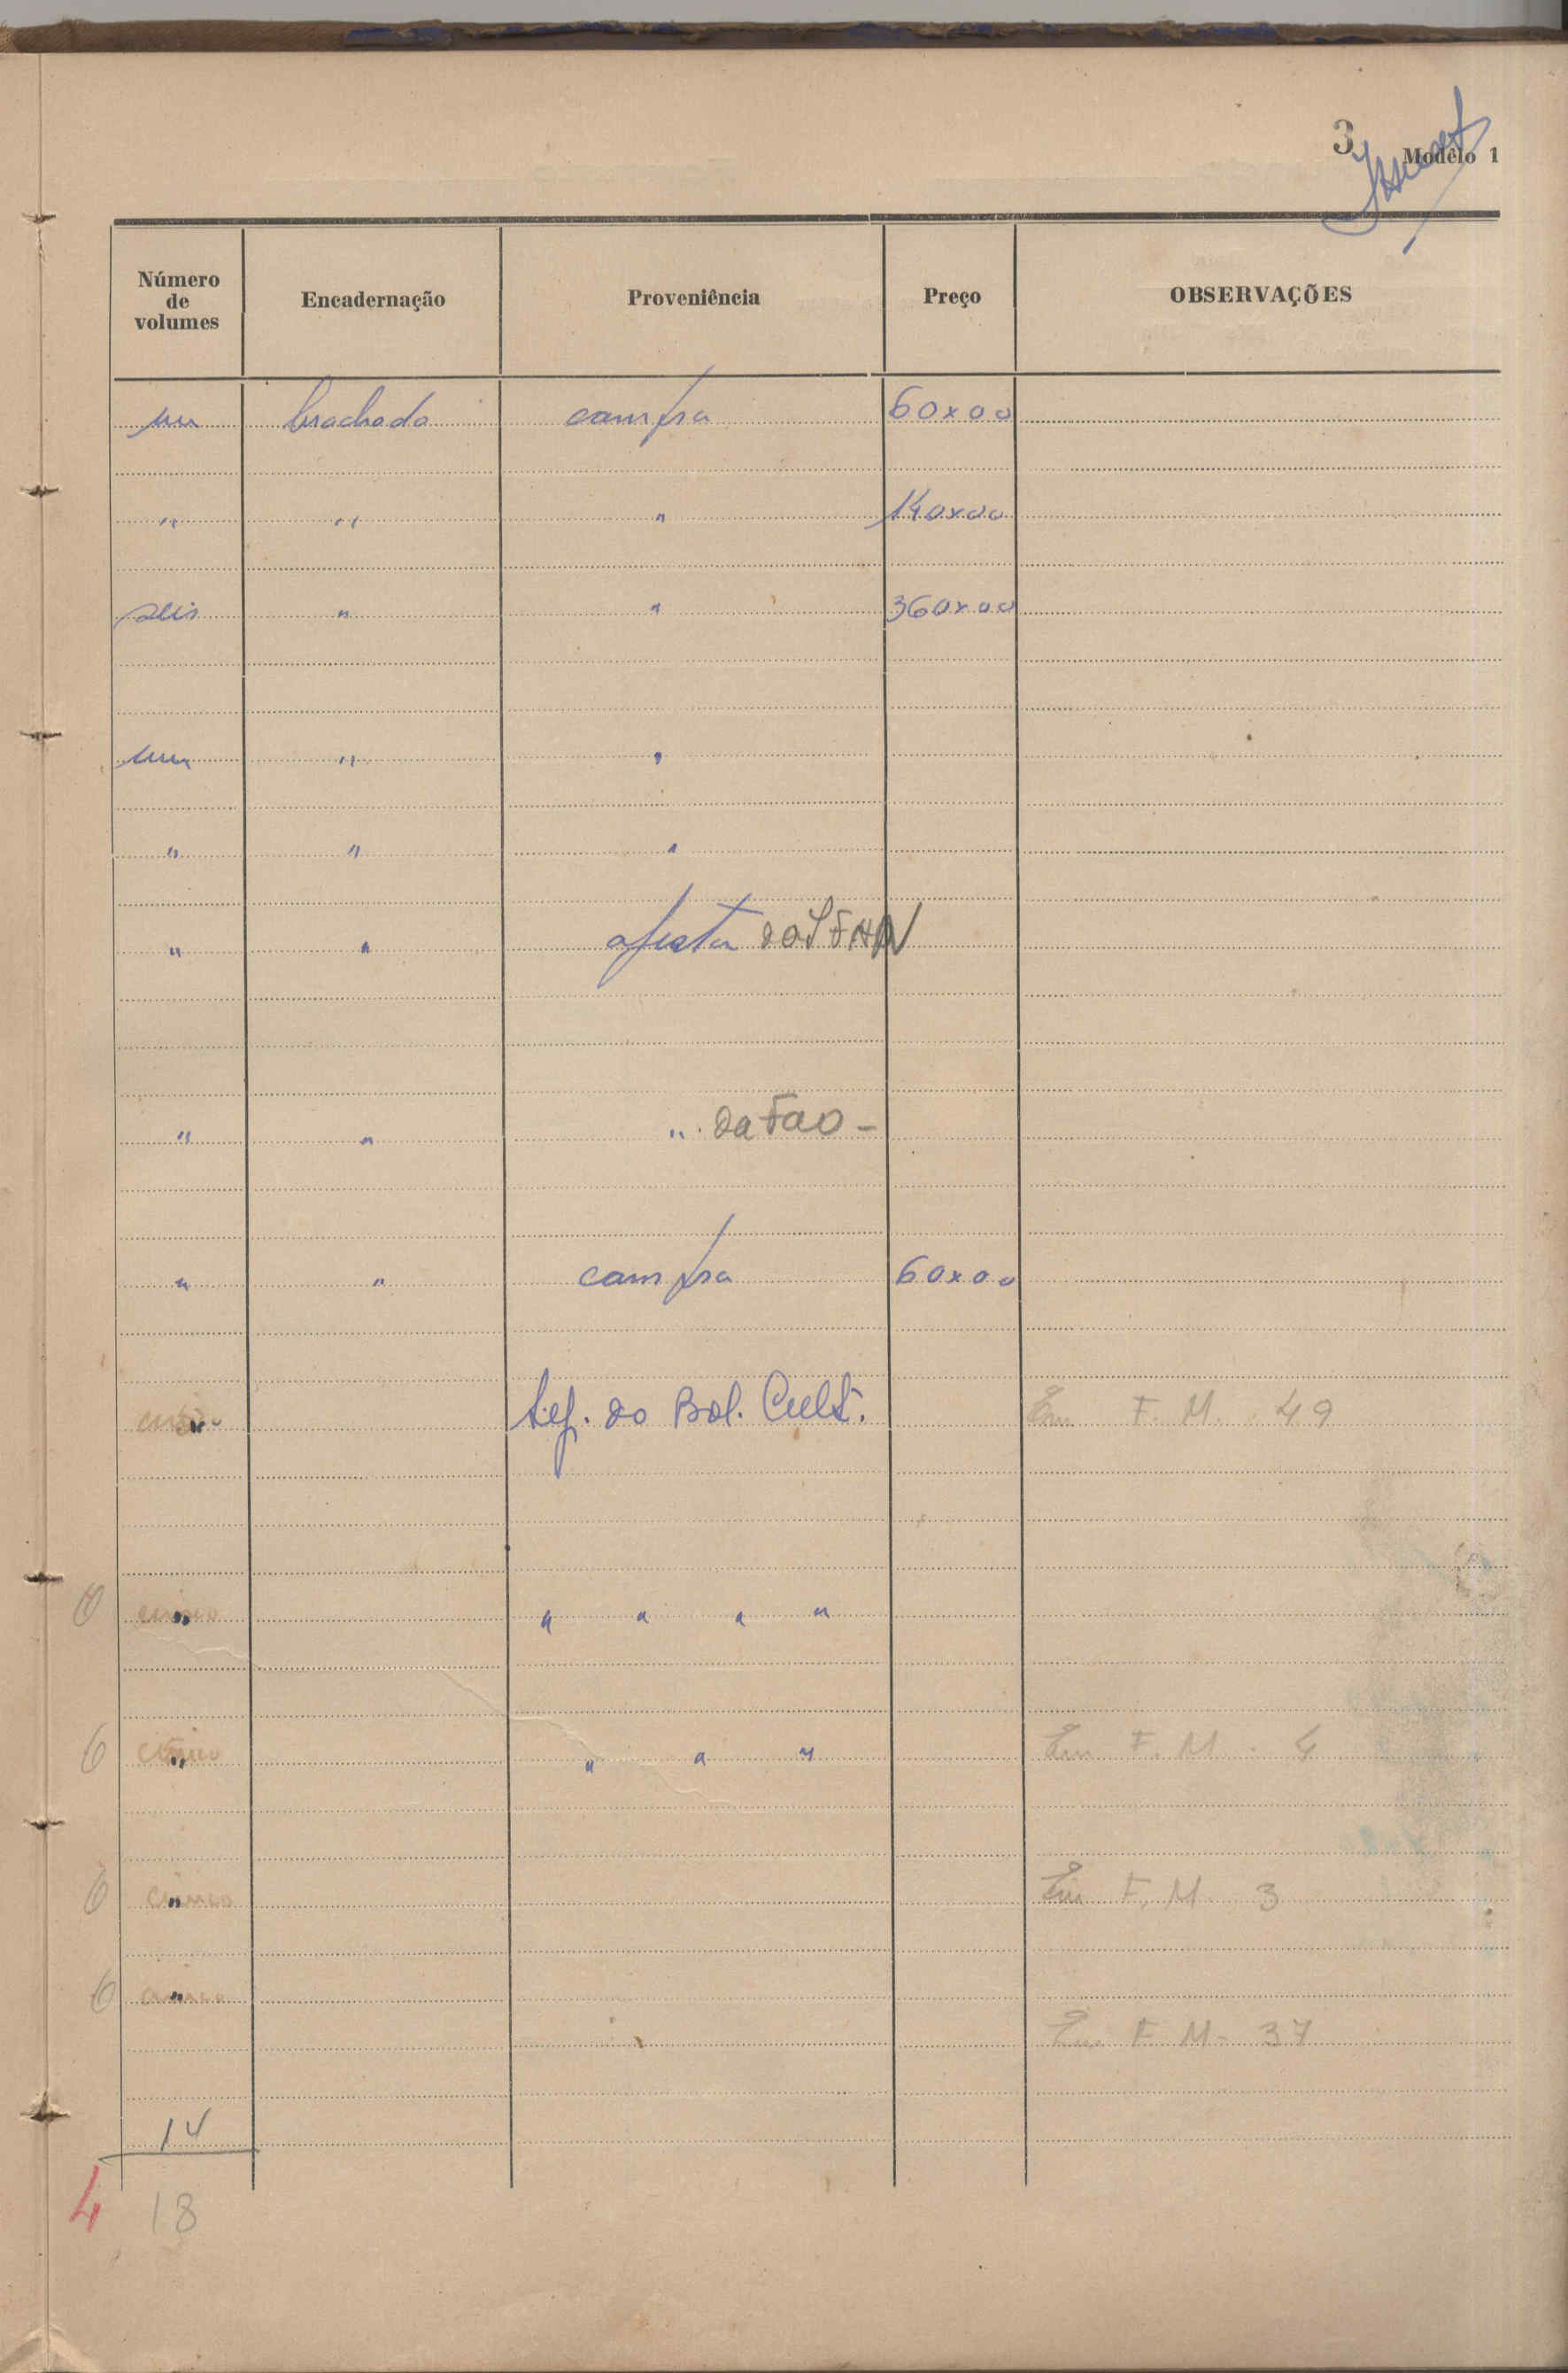 3
Modêlo 1
Número de volumes Encadernação Proveniência Preço OBSERVAÇÕES
um brochado compra 60x00
" " " 140x00
seis " " 360x00
um " "
" " "
" " oferta
" " " da FAO -
" " compra 60x00
Sep. do Bol. Cult. Em F. M. 49
cinco " " " "
6 cinco " " " Em F. M. 4
6 cinco Em F. M. 3
6 cinco
Em F. M. 37
14
4 18